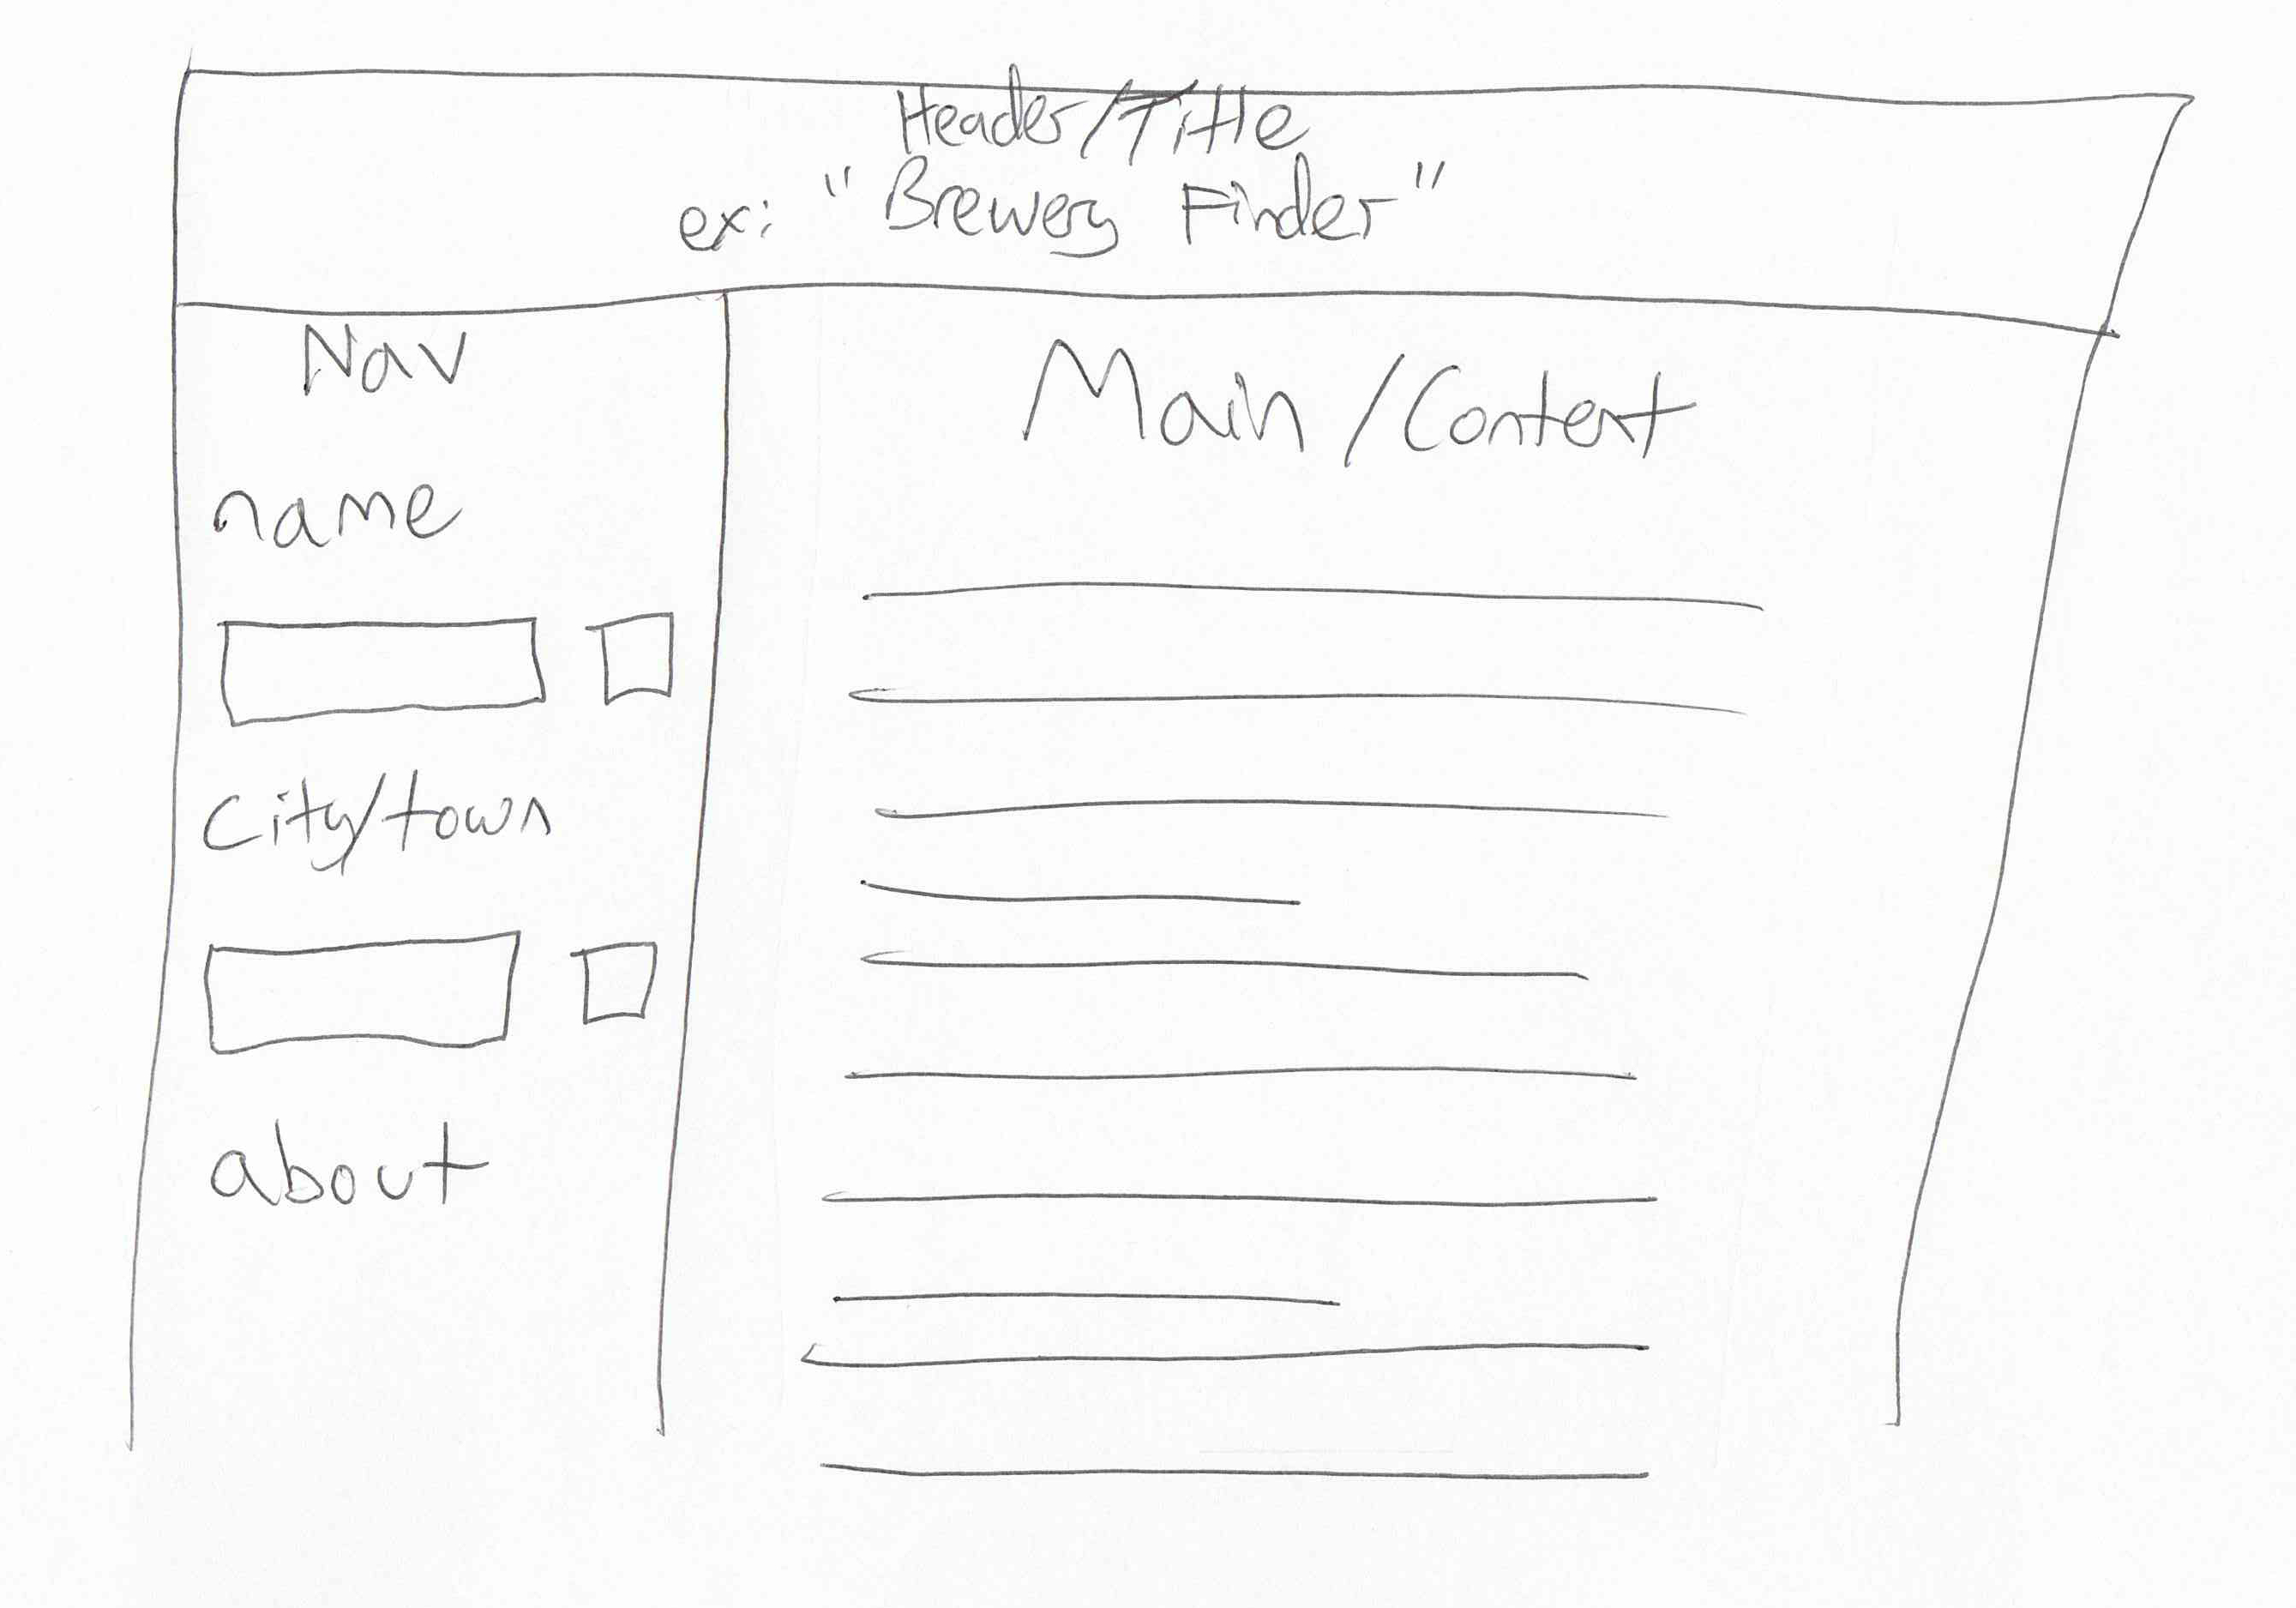 Header/Title
ex: "Brewery Finder"
Nav
name
City/town
about
Main/Content